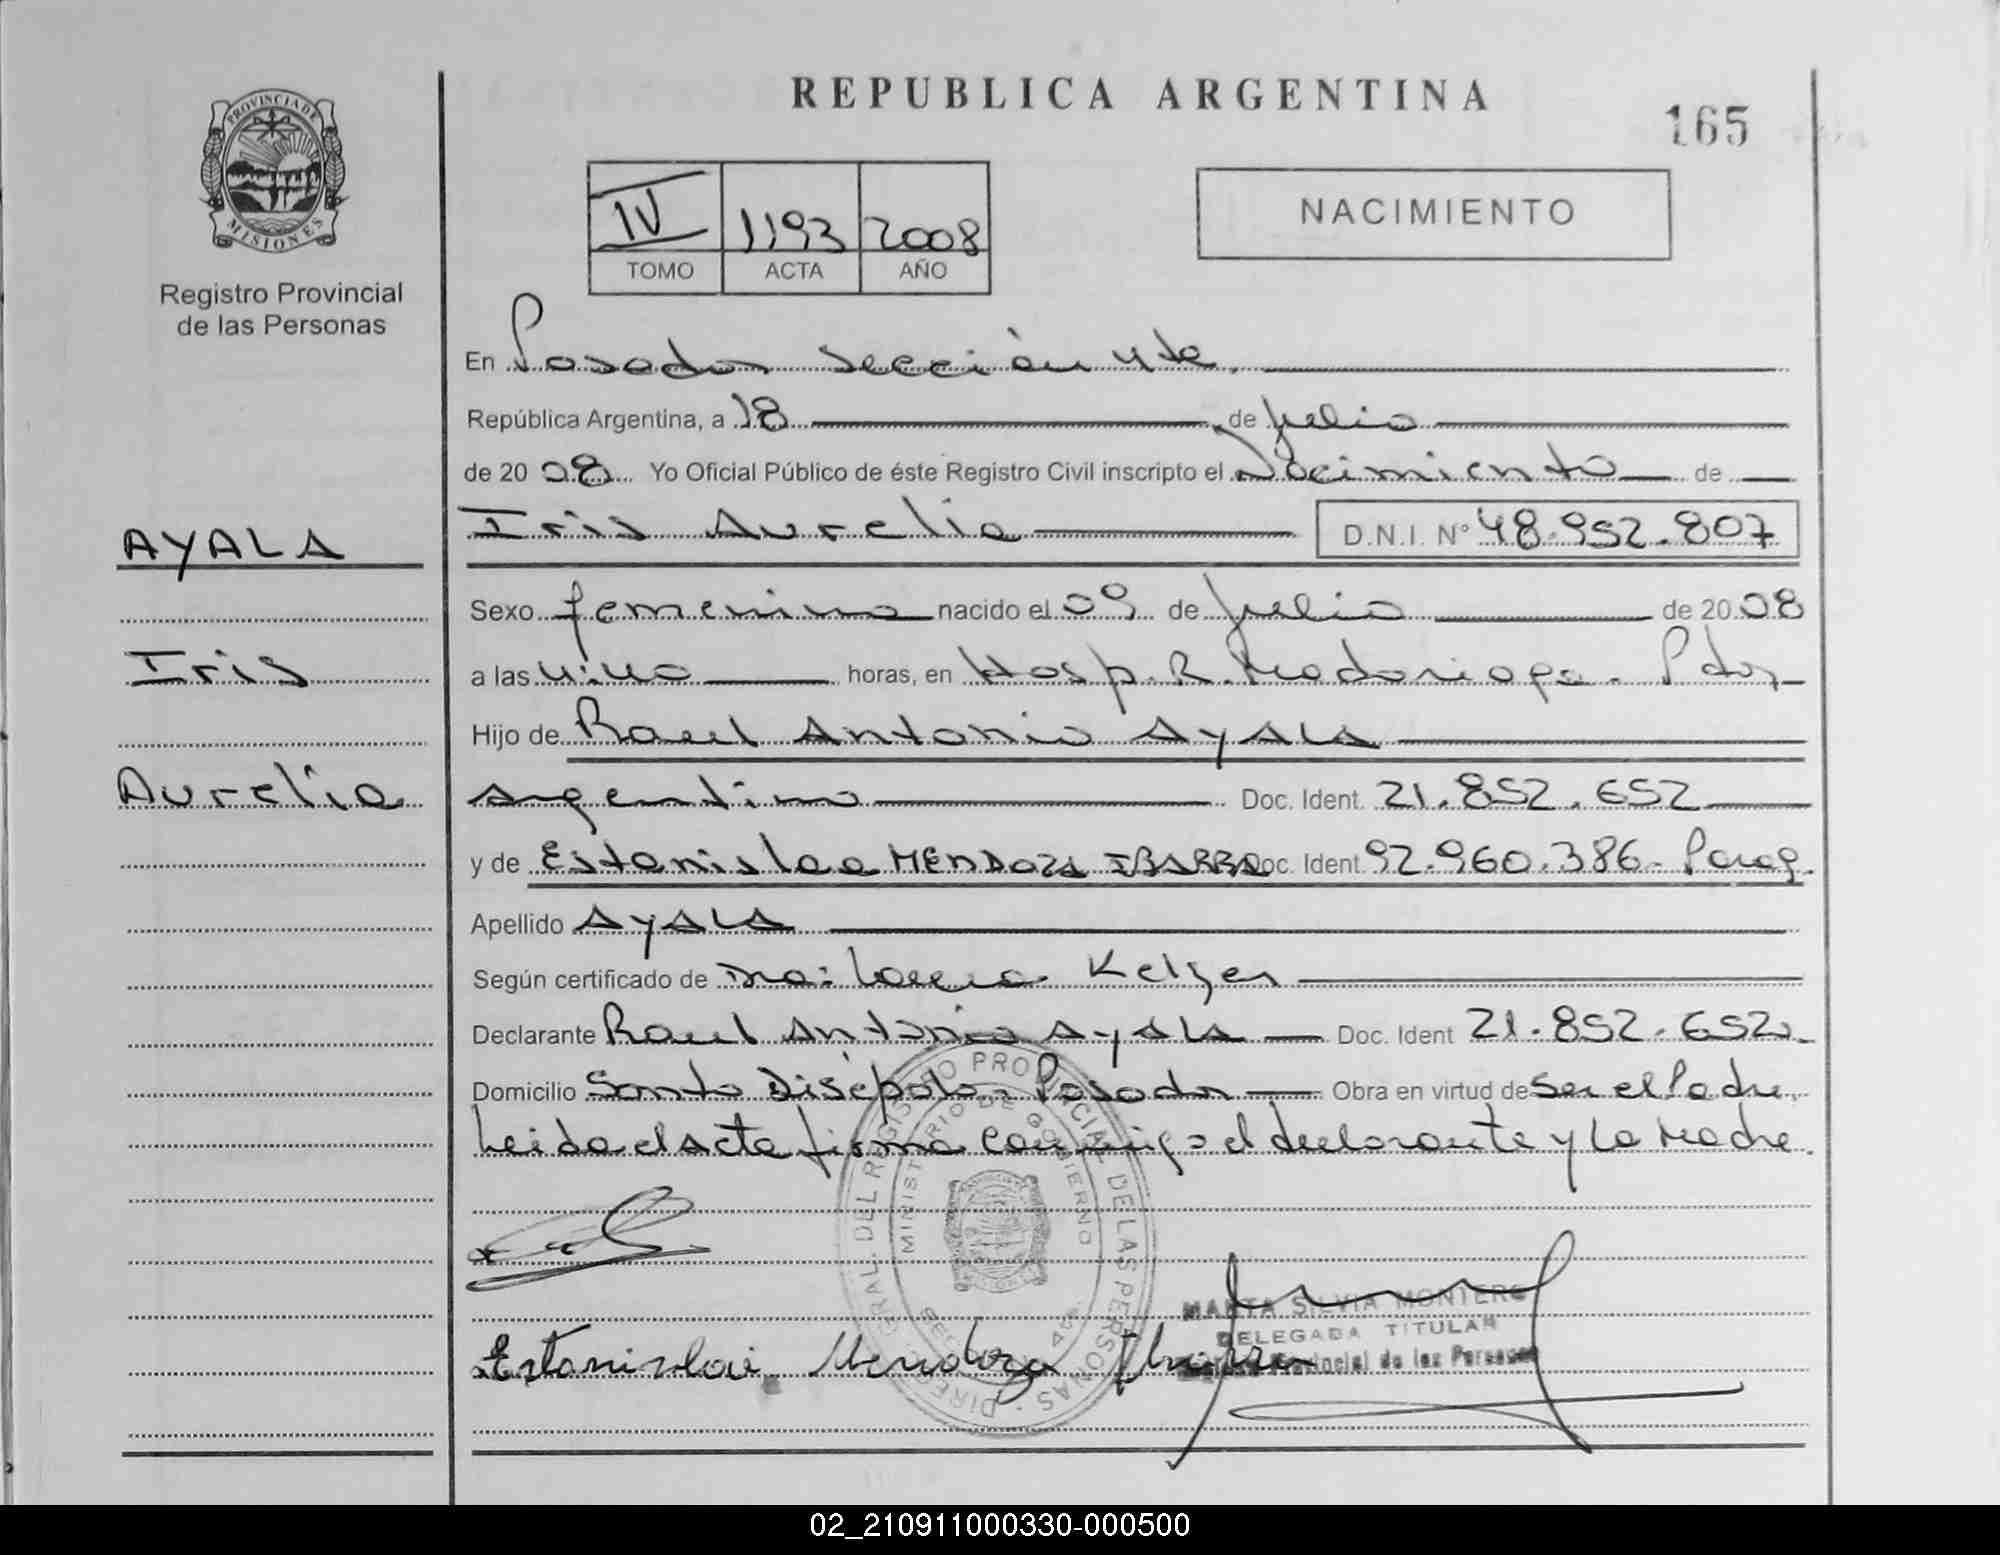 REPUBLICA ARGENTINA
165
PROVINCIA DE
MISIONES
Registro Provincial
de las Personas
IV 1193 2008
TOMO ACTA AÑO
NACIMIENTO
En Posadas Sección 4ta.
República Argentina, a 18 de Julio
de 2008 Yo Oficial Público de éste Registro Civil inscripto el Nacimiento de
Iris Aurelia D.N.I. Nº 48.952.807
AYALA
Iris
Aurelia
Sexo femenino nacido el 09 de Julio de 2008
a las horas, en Hosp. R. Madariaga. Pdas
Hijo de Raul Antonio AYALA
argentino Doc. Ident. 21.852.652
y de Estanislaa MENDOZA IBARRA Doc. Ident 92.960.386- Parag.
Apellido AYALA
Según certificado de Dra:
Declarante Raul Antonio AyALA Doc. Ident 21.852.652
Domicilio Santo Disépolo- Posadas Obra en virtud de Ser el Padre.
Leida el Acta firma conmigo el declarante y la Madre
DIRECC GRAL. DEL REGISTRO PROVINCIAL DE LAS PERSONAS
MINISTERIO DE GOBIERNO
MARTA SILVIA MONTERO
DELEGADA TITULAR
Provincial de las Personas
Estanislaa Mendoza Ibarra
02_210911000330-000500